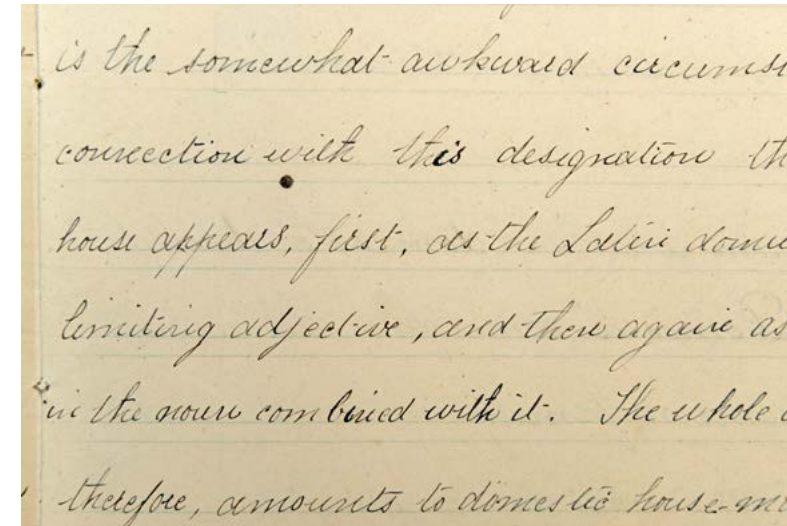 is the somewhat awkward circumst
connection with this designation th
house appears, first, as the Latin domu
limiting adjective, and then again as
in the noun combined with it. The whole
therefore, amounts to domestic house-m